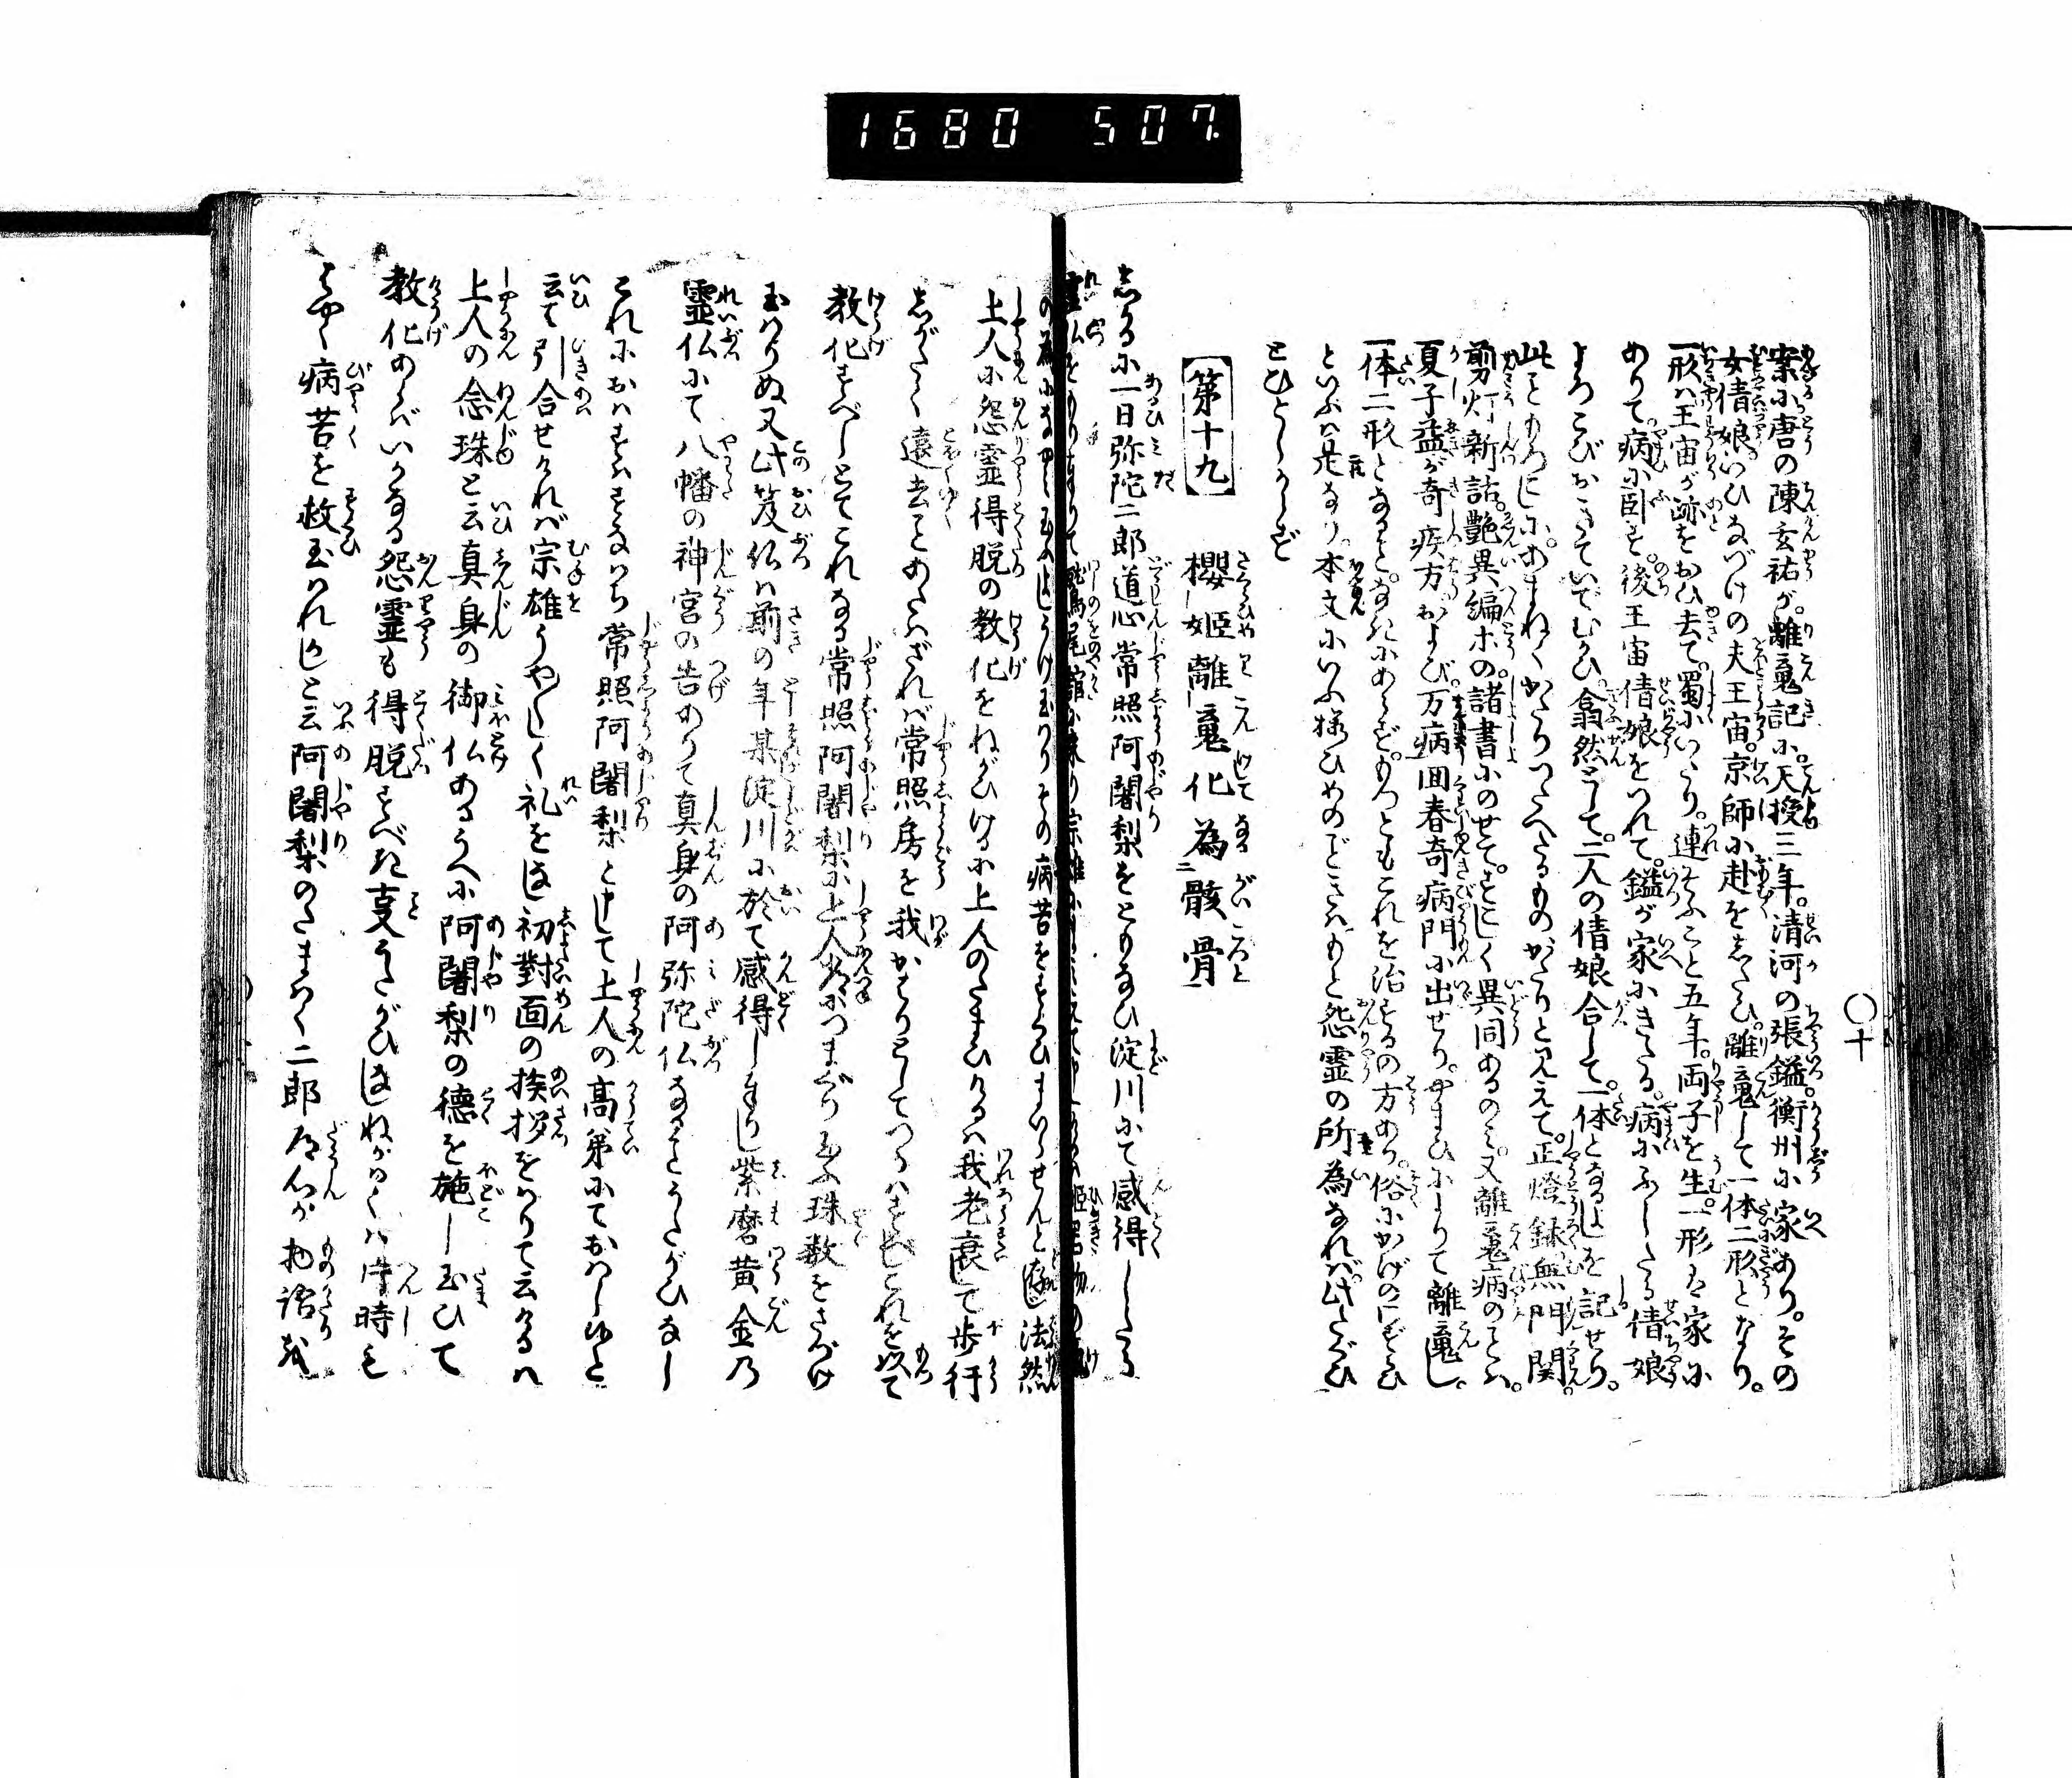 1680 507.
〇十
案に唐の陳玄祐が。離䰟記に。天授三年。清河の張鎰。衡州に家あり。その
女倩娘。いひなづけの夫王宙。京師に赴をしたひ。離䰟して一体二形となり。
一形ハ王宙が跡をおひ去て。蜀にいたり。連そふこと五年。両子を生。一形ハ家に
ありて。病に臥す。後王宙倩娘をつれて。鎰が家にきたる。病にふしたる倩娘
よろこびおきていでむかひ。翕然として。二人の倩娘合して。一体となるよしを記せり。
此こともろこしに。あまねくかたりつたへたるものがたりと見えて。正燈録無門関。
剪灯新話。艶異編ホの。諸書にのせて。すこしく異同あるのミ。又離䰟病のことハ。
夏子益が奇疾方および。万病回春奇病門に出せり。やまひによりて離䰟し。
一体二形となると。なきにあらず。もつともこれを治するの方あり。俗にかげのわづらひ
といふハ是なり。本文にいふ桜ひめのごときハもと怨霊の所為なれバ。此たぐひ
とひとしからず
【第十九】　櫻姫離䰟化為二骸骨
しかるに一日弥陀二郎道心常照阿闍梨をともなひ淀川にて感得したる
霊仏をもりまゐりて鷲尾の舘に来り宗雄に
の為になやミ玉ふよしうけ玉ハりその病苦をすくひまゐらせんと存じ法然
上人に怨霊得脱の教化をねがひけるに上人のたまひけるハ我老衰して歩行
しがたく遠去ことあたハざれバ常照房を我かはりとしてつかハすべしこれを以て
教化すべしとてこれなる常照阿闍梨に上人常につまぐり玉ふ珠数をさづけ
玉ハりぬ又此笈仏ハ前の年某淀川に於て感得しまゐりし紫磨黄金乃
霊仏にて八幡の神宮の告ありて真身の阿弥陀仏なることうたがひなし
これにおハすハすなハち常照阿闍梨と申して上人の高弟にておハしゆと
云て引合せけれバ宗雄うや〳〵しく礼をほどこし初對面の挨拶をハりて云けるハ
上人の念珠と云真身の御仏あるうへに阿闍梨の徳を施し玉ひて
教化あらバいかなる怨霊も得脱すべき㕝うたがひ候ハねねがハくハ片時も
はやく病苦を救玉ハれかしと云阿闍梨のたまハく二郎どうしんが物語に